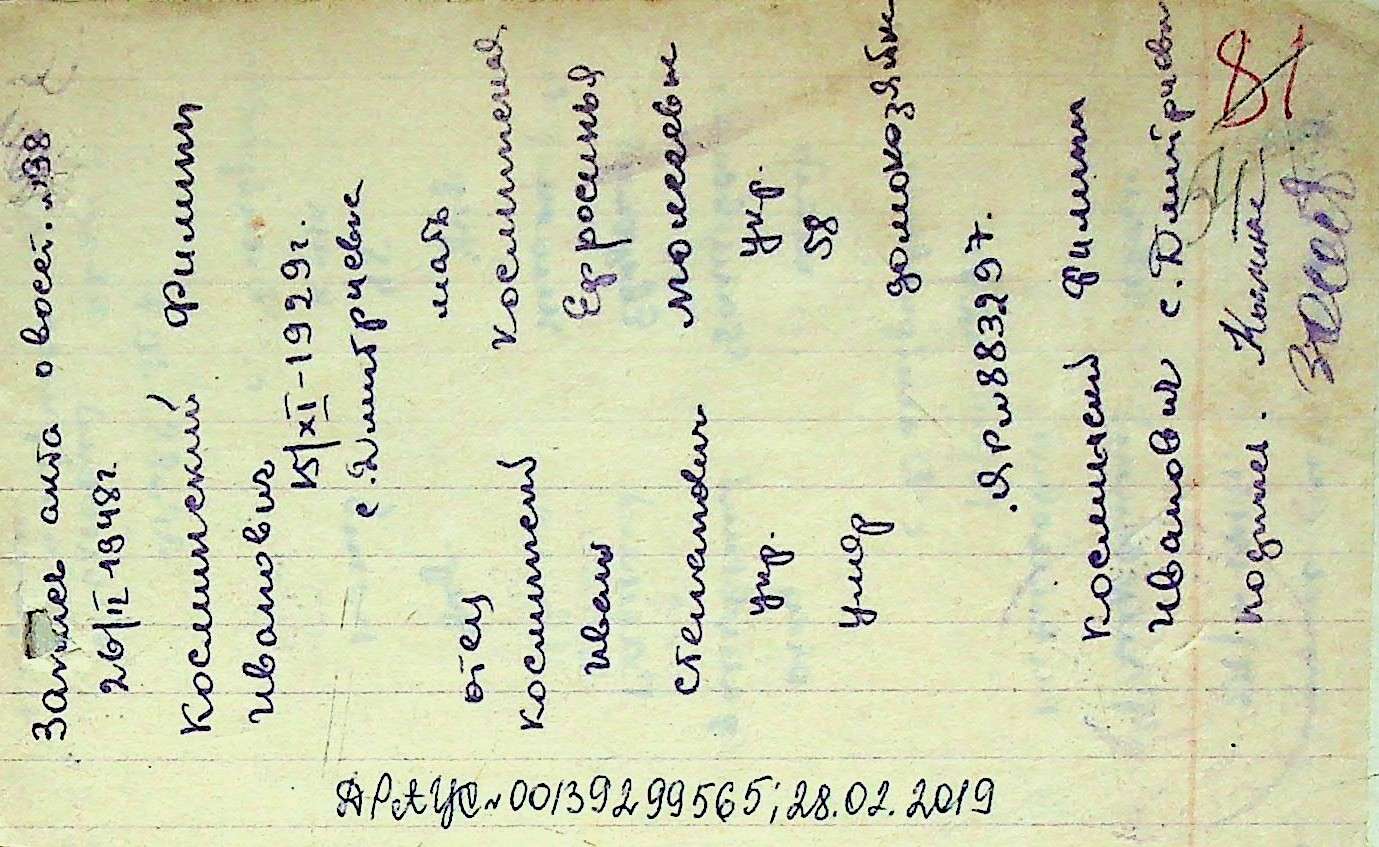 Запись акта о восст. №38
26/II-1948г.
Косминский Филипп
Иванович
15/XI-1929г.
с. Дмитриевке
отец мать
Косминский Косминская
Иван Ефросинья
Степанович Моисеевн
укр. укр.
58
умер домохозяйк
ЯР№883297.
Косминский Филипп
Иванович с. Дмитриевк
подпись.
81
ДРАЦС №00139299565; 28.02.2019